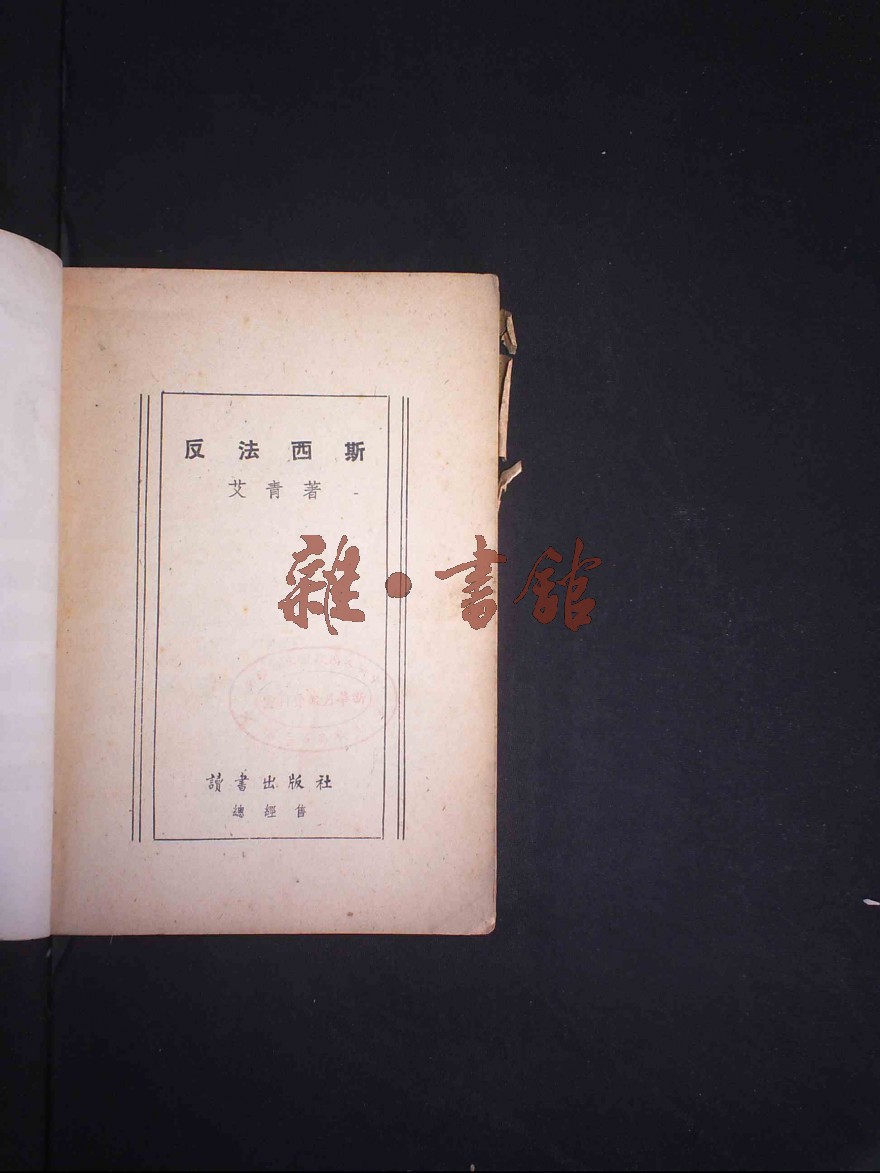 反法西斯
艾青著
雜·書館
讀書出版社
總經售